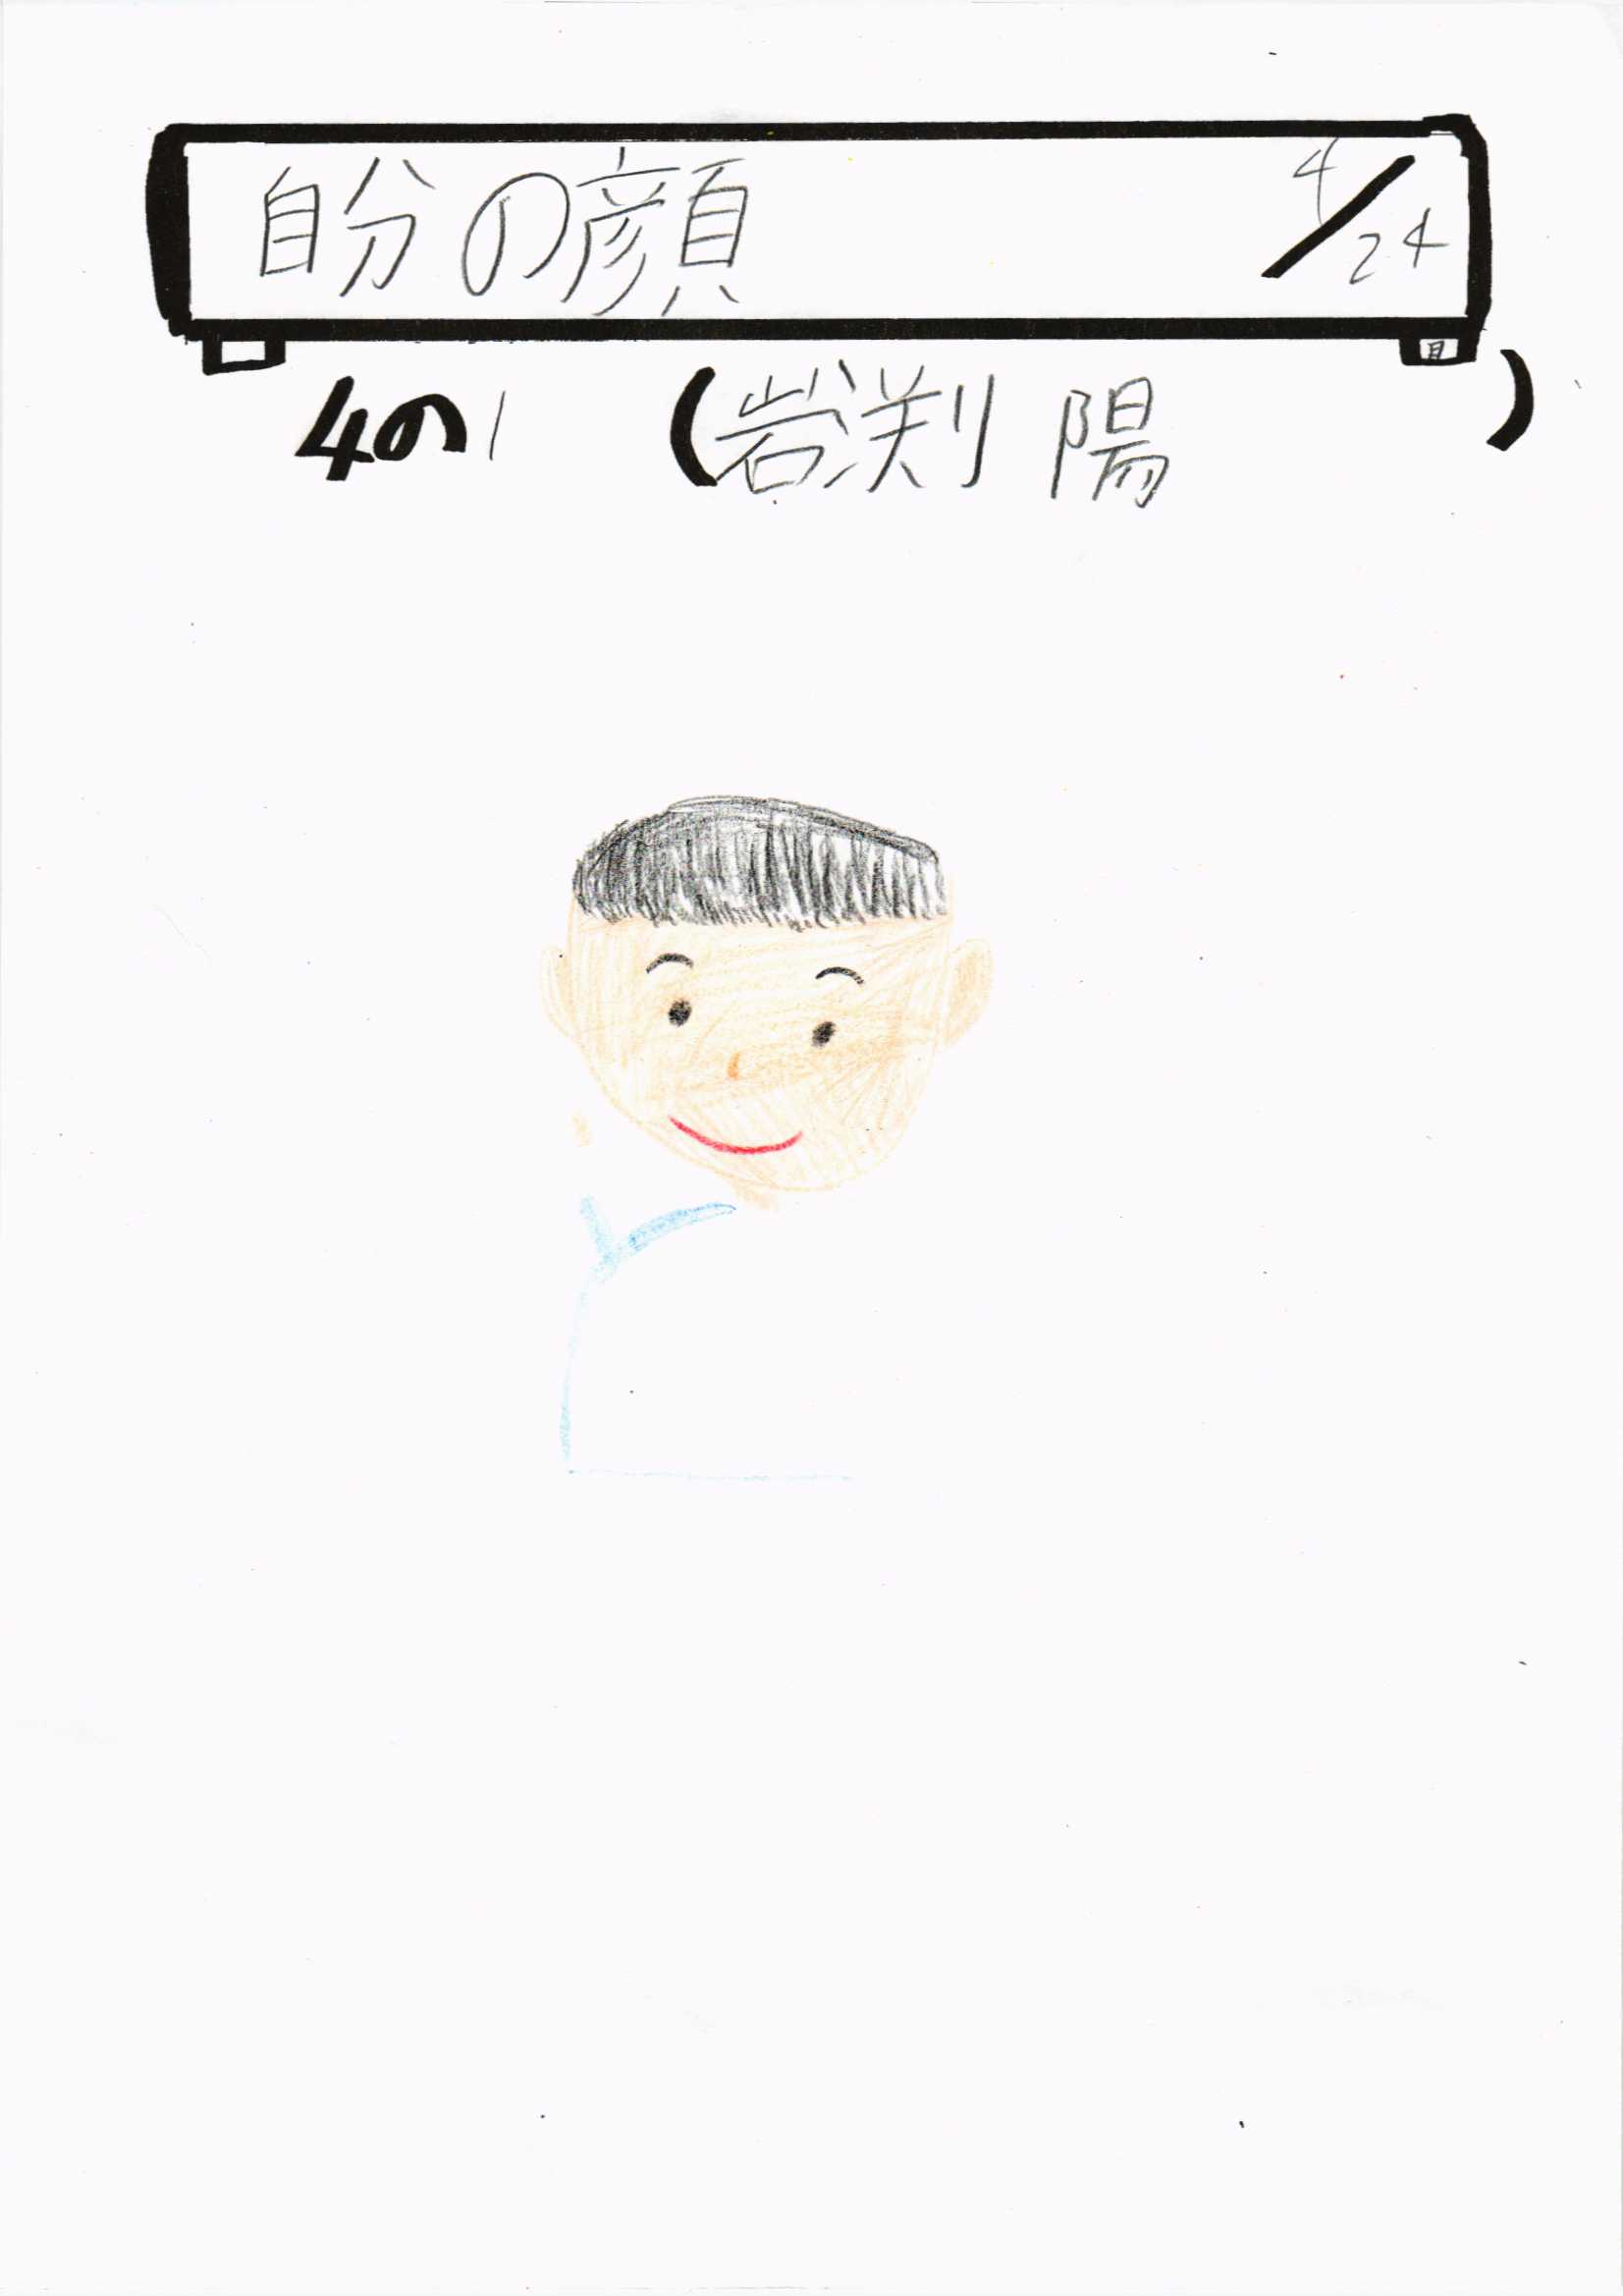 自分の顔 4/24
4の1 (岩渕 陽)